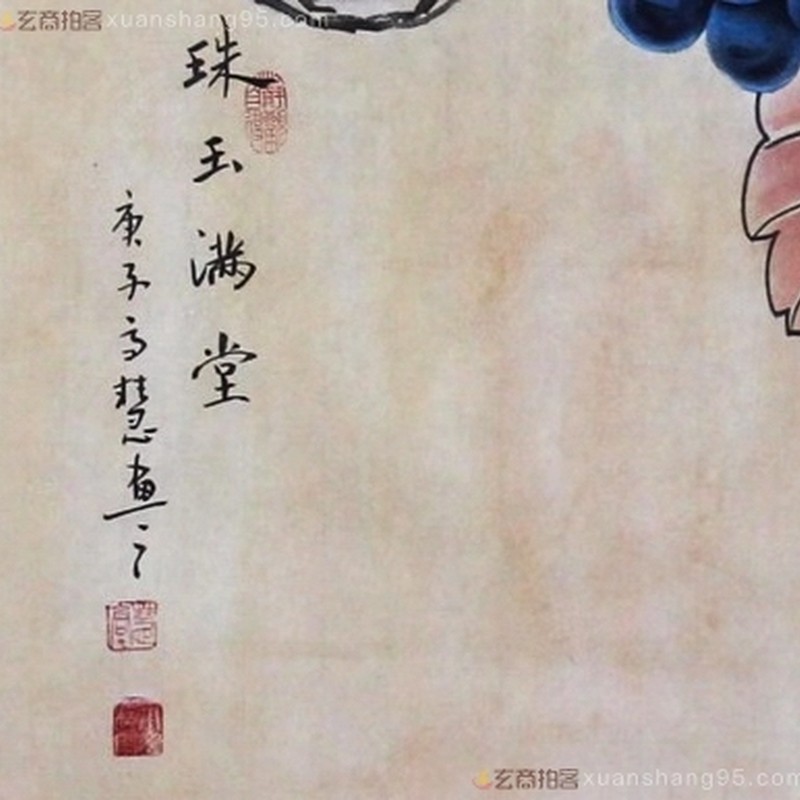 玄商拍客xuanshang95.com
珠玉满堂
庚子高慧画之
玄商拍客xuanshang95.com